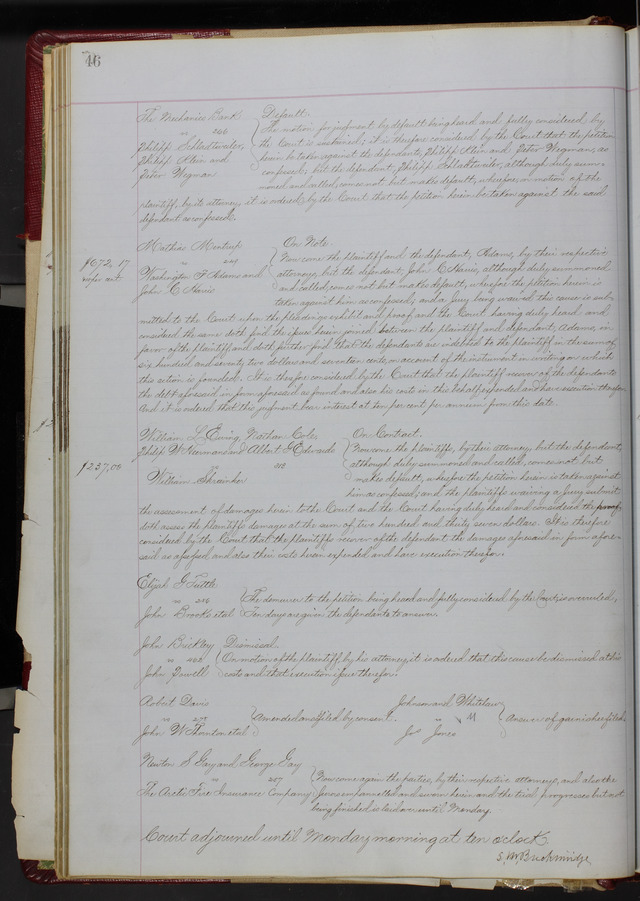 46
The Mechanics Bank } Default.
vs 206 } The motion for judgment by default being heard and fully considered, by
Philipp Schledtweiler, } the Court is sustained; it is therefore considered by the Court that the petition
Philipp Klein and } herein be taken against the defendants, Philipp Klein and Peter Wegman, as
Peter Wegman } confessed; but the defendant, Philipp Schledtweiler, although duly summoned and called, comes not but makes default, wherefore, on motion of the
plaintiff, by its attorney, it is ordered by the Court that the petition herein be taken against the said
defendant as confessed.
Mathias Mentrup } On Note.
vs } Now come the plaintiff and the defendant, Adams, by their respective
Washington F Adams and } attorneys, but the defendant, John C Havis, although duly summoned
John C Havis } and called, comes not but makes default, wherefore the petition herein is
taken against him as confessed; and a jury being waived this cause is sub-
mitted to the Court upon the pleadings exhibit and proof, and the Court having duly heard and
considered the same doth find the issue herein joined between the plaintiff and defendant, Adams, in
favor of the plaintiff, and doth further find that the defendants are indebted to the plaintiff in the sum of
six hundred and seventy two dollars and seventeen cents, on account of the instrument in writing on which
this action is founded. It is therefore considered by the Court that the plaintiff recover of the defendants
the debt aforesaid in form aforesaid as found and also his costs in this behalf expended and have execution therefor
And it is ordered that this judgment bear interest at ten per cent per annum from this date.
$237,00
William L Ewing, Nathan Cole, } On Contract.
Philip and Albert G Edwards } Now come the plaintiffs, by their attorney, but the defendant,
vs } although duly summoned and called, comes not but
William Shrainka } makes default, wherefore the petition herein is taken against
him as confessed; and the plaintiffs waiving a jury submit
the assessment of damages herein to the Court and the Court having duly heard and considered the proof,
doth assess the plaintiffs damage at the sum of two hundred and thirty seven dollars. It is therefore
considered by the Court that the plaintiffs recover of the defendant the damages aforesaid in form afore-
said as assessed and also their costs herein expended and have execution therefor.
Elijah G Tuttle }
vs 216 } The demurrer to the petition being heard and fully considered by the Court, is overruled,
John Brooks et al } Ten days are given the defendants to answer.
John Brickley } Dismissal.
vs } On motion of the plaintiff, by his attorney, it is ordered that this cause be dismissed at his
John Powell } costs and that execution issue therefor.
Robert Davis } Johnson and Whitelaw }
vs } Amended and filed by consent. vs } Answer of garnishee filed
John W Thornton et al } Jos Jones }
Newton S Gay and George Gay }
vs 257 } Now come again the parties, by their respective attorneys, and also the
The Arctic Fire Insurance Company } Jurors empannelled and sworn herein and the trial progresses but not
being finished is laid over until Monday.
Court adjourned until Monday morning at ten o'clock.